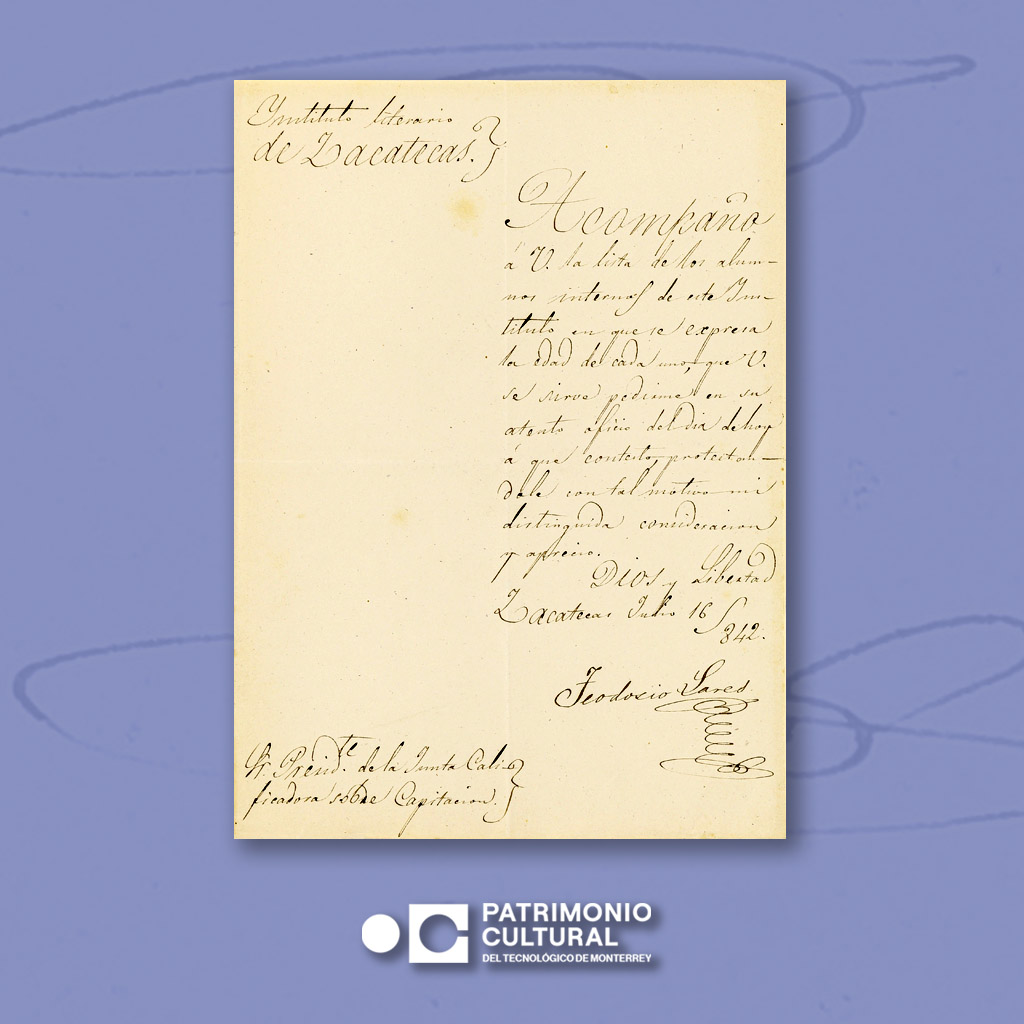 Ynstituto literario
de Zacatecas.}
Acompaño
á V. la lista de los alum-
nos internos de este Yns-
tituto en que se expresa
la edad de cada uno, que V.
se sirve pedirme en su
atento oficio del dia de hoy
á que contesto, protestan-
dole con tal motivo mi
distinguida consideracion
y aprecio.
Dios y Libertad
Zacatecas Julio 16
/842.
Teodosio Lares
Sr. Presid.te de la Junta Cali-}
ficadora sobre Capitacion.
PATRIMONIO
CULTURAL
DEL TECNOLÓGICO DE MONTERREY